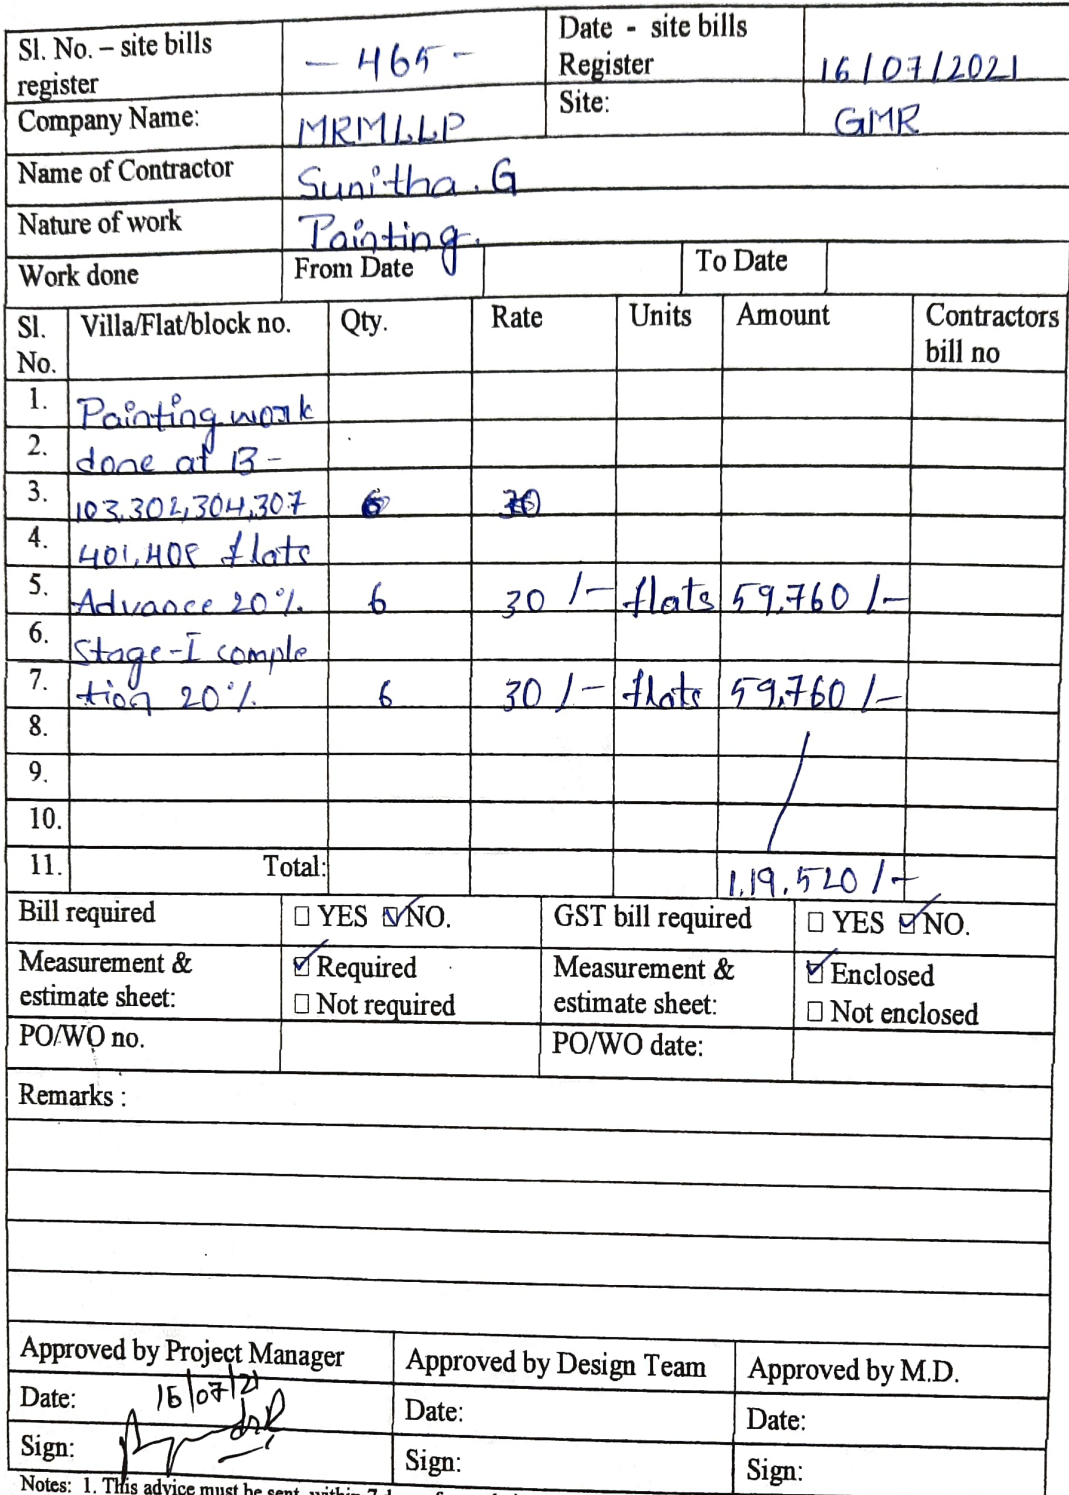 Sl. No. – site bills register - 465 - Date - site bills Register 16/07/2021
Company Name: MRMLLP Site: GMR
Name of Contractor Sunitha. G
Nature of work Painting.
Work done From Date To Date
Sl. No. Villa/Flat/block no. Qty. Rate Units Amount Contractors bill no
1. Painting work
2. done at B-
3. 103,302,304,307 6
4. 401,408 flats
5. Advance 20% 6 30 /- flats 59,760 /-
6. Stage-I comple
7. tion 20% 6 30 /- flats 59,760 /-
8.
9.
10.
11. Total: 1,19,520 /-
Bill required ☐ YES ☑ NO. GST bill required ☐ YES ☑ NO.
Measurement & estimate sheet: ☑ Required ☐ Not required Measurement & estimate sheet: ☑ Enclosed ☐ Not enclosed
PO/WO no. PO/WO date:
Remarks :
Approved by Project Manager Approved by Design Team Approved by M.D.
Date: 16/07/21 Date: Date:
Sign: Sign: Sign:
Notes: 1. This advice must be sent within 7 days